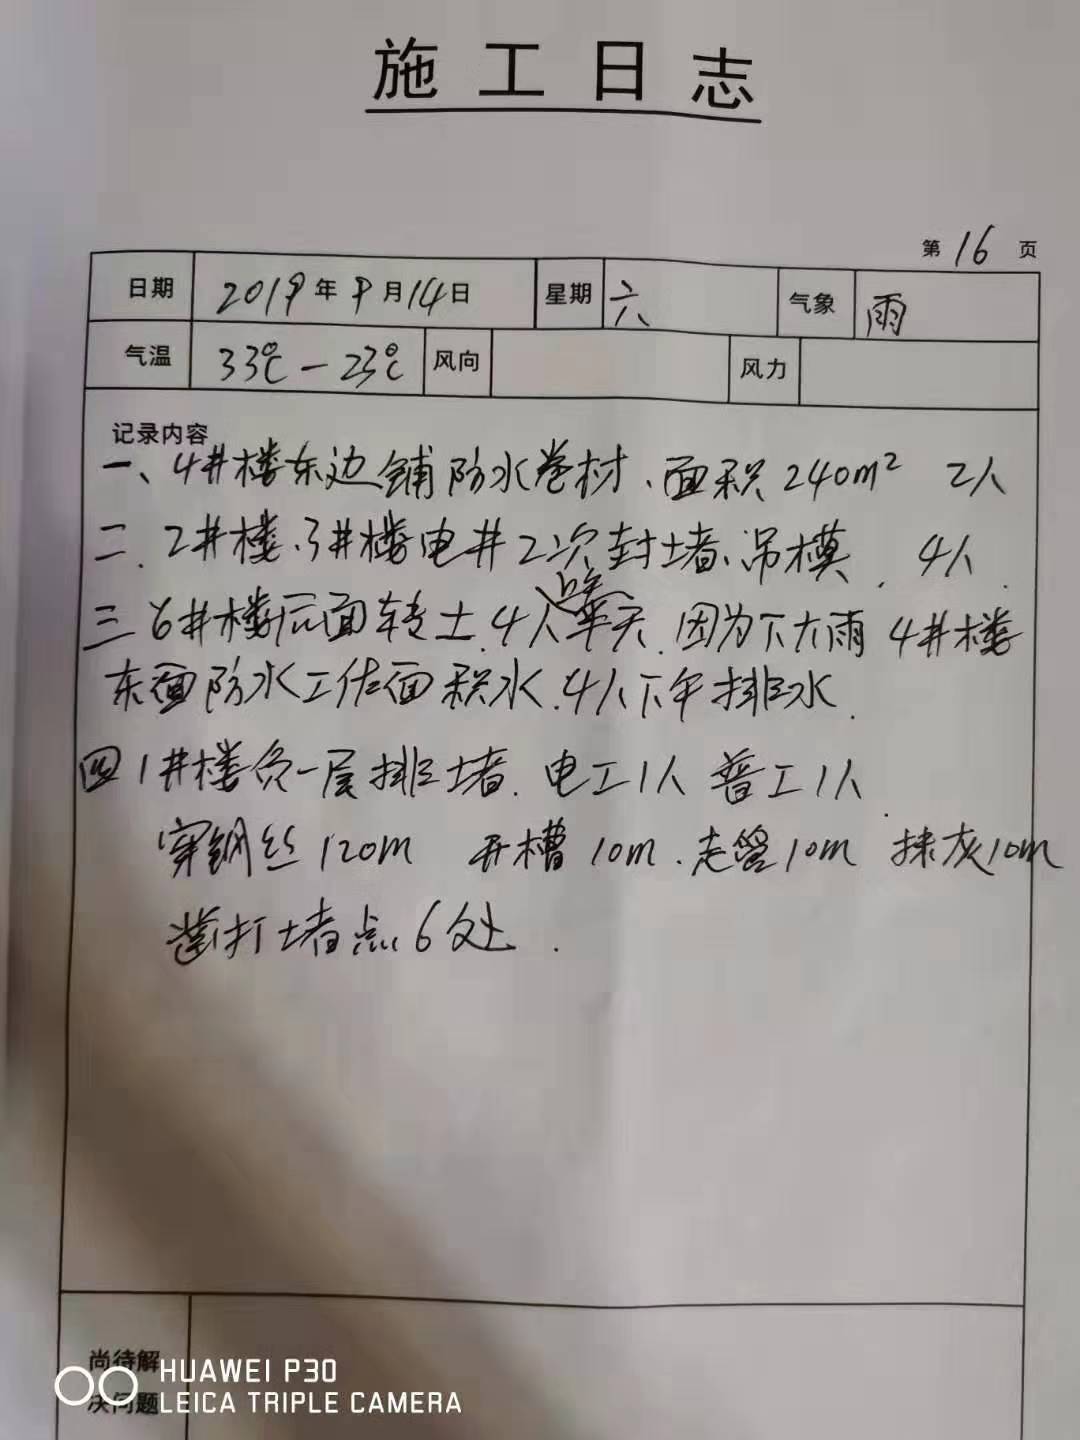 施工日志
第16页
日期 2019年9月14日 星期 六 气象 雨
气温 33℃—23℃ 风向 风力
记录内容
一、4井楼东边铺防水卷材、面积240m² 2人
二、2井楼、3井楼电井2次封堵、吊模、4人
三 6井楼后面转土、4人半天、因为下大雨 4井楼
东面防水工作面积水、4人下午排水、
四 1井楼负一层排堵、电工1人 普工1人
穿钢丝120m 开槽10m、走管10m 抹灰10m
凿打堵点6处、
尚待解
决问题
HUAWEI P30
LEICA TRIPLE CAMERA